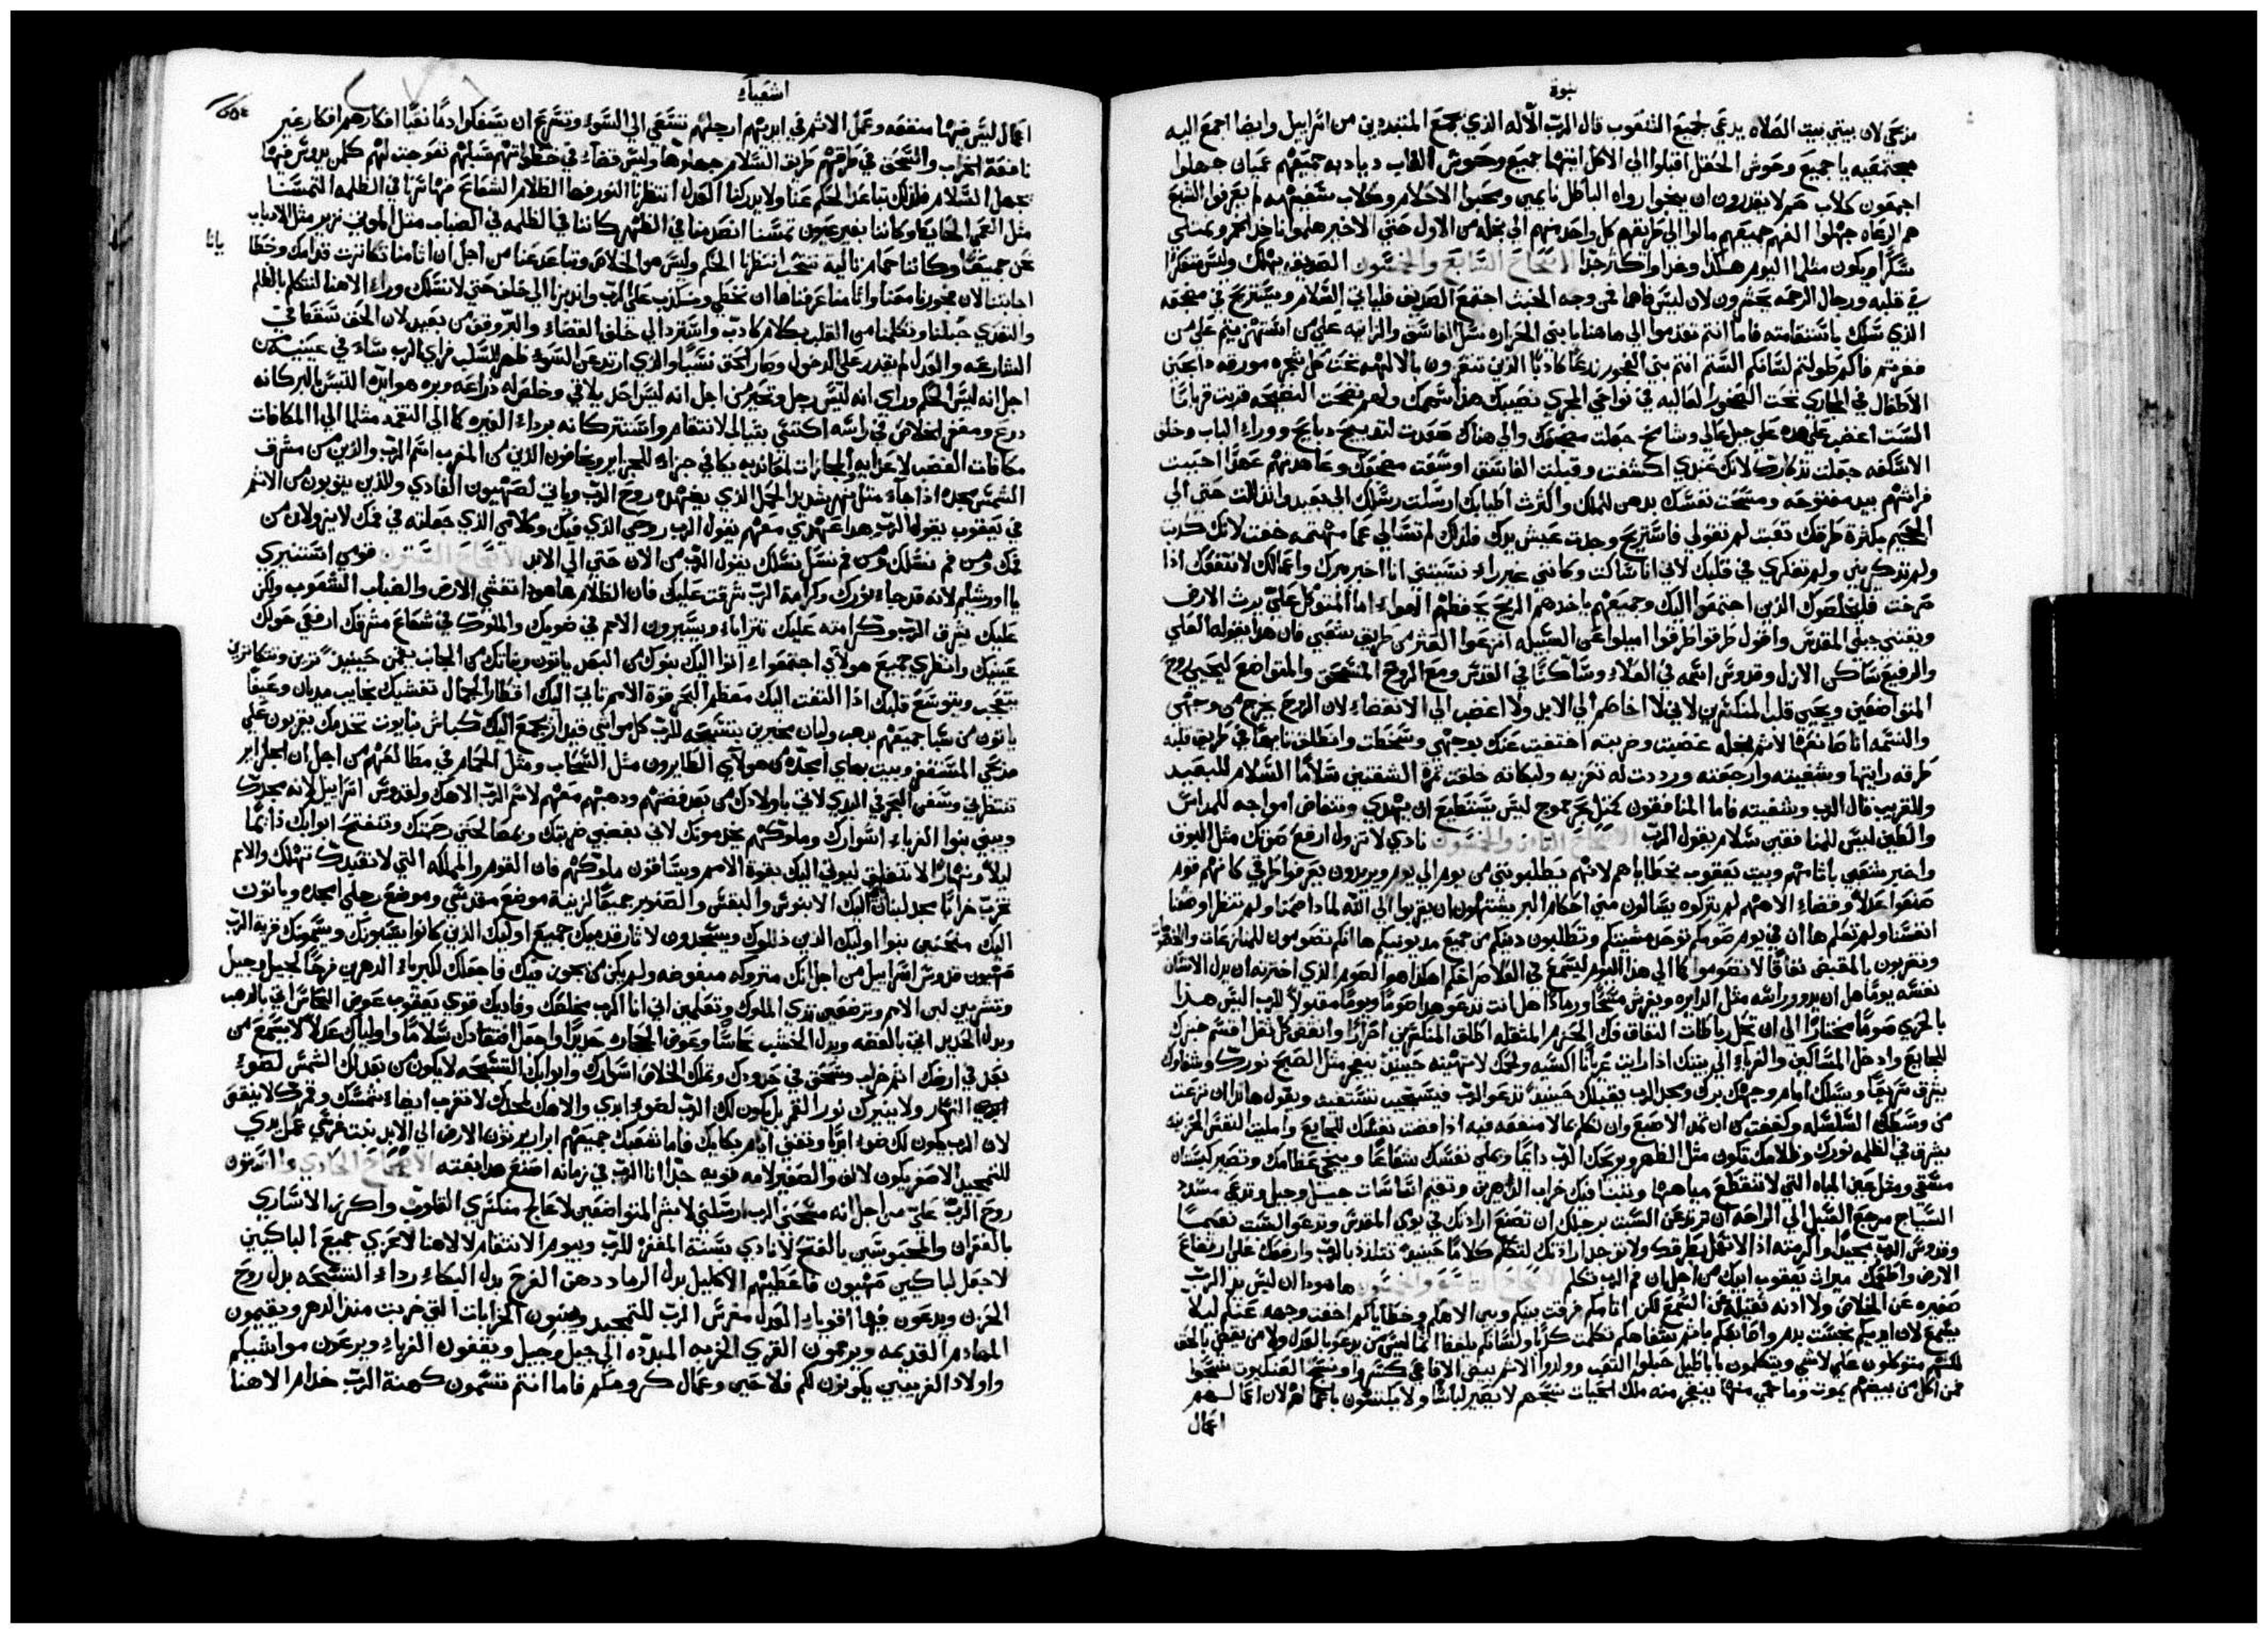 نبوة
مذبحي لان بيتي بيت الصلاه يدعي لجميع الشعوب قال الرب الاله الذي يجمع المتبددين من اسراييل وايضا اجمع اليه
مجتمعيه يا جميع وحوش الحقل اقبلوا الي الاكل ايتها جميع وحوش الغاب ديادبه جميعهم عميان جهلوا
اجمعون كلاب خرس لا يقدرون ان ينبحوا رواه الباطل نايمين ومحبوا الاحلام وكلاب سفهه لم يعرفوا الشبع
هم الرعاه جهلوا الفهم جميعهم مالوا الي طريقهم كل واحد منهم الي بخله من الاول حتي الاخير هلموا ناخذ الخمر ونمتلي
سكرا ويكون مثلما اليوم هكذا وغدا واكثر جدا الاصحاح السابع والخمسون الصديق يهلك وليس متفكرا
في قلبه ورجال الرحمه يحشرون لان ليس فاهما فمن وجه الخبث اجتمع الصديق فلياتي السلام ويستريح في مضجعه
الذي سلك باستقامته فاما انتم تقدموا الي هاهنا يا بني الحزاره نسل الفاسق والزانيه علي من استهزيتم علي من
فغرتم فاكم وطولتم لسانكم الستم انتم بني الفجور زرعا كاذبا الذين تتعزون بالالهه تحت كل شجره مورقه ذابحين
الاطفال في المجاري تحت الصخور العاليه في نواحي المجري نصيبك هذا سهمك ولهم نضحت النضيحه قربت قربانا
الست اغضب علي هذه علي جبل عالي وشامخ جعلت مضجعك والي هناك صعدت لتذبحي ذبايح ووراء الباب وخلف
الاسكفه جعلت تذكارك لانك عندي اكتشفت وقبلت الفاسق اوسعت مضجعك وعاهدتهم عهدا احببت
فراشهم بيد مفتوحه ومسحت نفسك بدهن للملك واكثرت اطيابك ارسلت رسلك الي بعيد واتذللت حتي الي
الجحيم بكثرة طرقك تعبت لم تقولي فاستريح وجدت عيش يدك فلذلك لم تسالي عما منهتمه خفت لانك كذبت
ولم تذكريني ولم تفكري في قلبك لاني انا ساكت وكانني غير راء نسيتني انا اخبر ببرك واعمالك لا تنفعك اذا
صرخت فليخلصوك الذين اجتمعوا اليك وجميعهم ياخذهم الريح يخفضهم الهواء اما المتوكل علي يرث الارض
ويقتني جبلي المقدس واقول طرقوا طرقوا اميلوا عن السبيله انزعوا العثر من طريق شعبي فان هذا يقوله العلي
والرفيع ساكن الازل وقدوس اسمه في العلاء وساكنا في القدس ومع الروح المنسحق والمتواضع ليحيي روح
المتواضعين ويحيي قلب المنكسرين لاني لا اخاصم الي الابد ولا اغضب الي الانقضاء لان الروح يخرج من وجهي
والنسمه انا صانعها لاثم بخله غضبت وضربته اختفت عنك بوجهي وسخطت وانطلق تايها في طريق قلبه
طرقه رايتها وشفيته وارجعته ورددت له تعزيه ولبكاته خلقت ثمرة الشفتين سلاما السلام للبعيد
وللقريب قال الرب وشفيته فاما المنافقون كمثل بحر يموج ليس يستطيع ان يهدي وتتفاض امواجه للمداس
والطين ليس للمنافقين سلام يقول الرب الاصحاح الثامن والخمسون نادي لا تزول ارفع صوتك مثل البوق
واخبر شعبي باثامهم وبيت يعقوب بخطاياهم لانهم يطلبونني من يوم الي يوم ويريدون يعرفوا طرقي كانهم قوم
صنعوا عدلا وقضاء الاههم لم يتركوه يسالون مني احكام البر يشتهون ان يقربوا الي الله لماذا صمنا ولم تنظر اوضعنا
انفسنا ولم تعلم ها ان في يوم صومكم توجد مشيتكم وتطلبون دينكم من جميع مديونيكم ها انكم تصومون للمنازعات والتخضر
وتضربون بالمقبض نفاقا لا تصوموا كما الي هذا اليوم ليسمع في العلاء صراخكم اهكذا هو الصوم الذي اخترته ان يذل الانسان
نفسه يوما هل ان يدور راسه مثل الدايره ويفرش مسحا ورمادا هل انت تدعو هذا صوما ويوما مقبولا للرب اليس هذا
بالحري صوما مختارا الي ان تحل رباطات النفاق فك الحزم المثقله اطلق المنكسرين احرارا وانقض كل ثقل اقسم خبزك
للجايع وادخل المساكين والغرباء الي بيتك اذا رايت عريانا اكسيه ولحمك لا تهينه حينيذ ينفجر مثل الصبح نورك وشفاوك
يشرق سريعا ويسلك امام وجهك برك ومجد الرب يقبلك حينيذ تدعو الرب فيستجيب تستغيث ويقول هانذا ان نزعت
من وسطك السلسله وكففت من ان تمد الاصبع وان تتكلم بما لا منفعه فيه اذا فضت نفسك للجايع وامليت النفس الحزينه
يشرق في الظلمه نورك وظلامك تكون مثل الظهر ويريحك الرب دايما ويملي نفسك شعاعا وينجي عظامك وتصير كبستان
مسقي ومثل عين المياه التي لا تنقطع مياهها ويبتنا فيك خراب الداهرين وتقيم اساسات جيل وجيل وتدعي مسدد
السياج مرجع السبل الي الراحه ان ترد عن السبت برجلك ان تصنع ارادتك في يومي المقدس وتدعو السبت نعيما
وقدوس الرب مجيدا واكرمته اذا لا تعمل بطرقك ولا توجد ارادتك لتتكلم كلاما حينيذ تتلذذ بالرب وارفعك علي ارتفاع
الارض واطعمك ميراث يعقوب ابيك من اجل ان فم الرب تكلم الاصحاح التاسع والخمسون هاهوذا ان ليس يد الرب
صغيره عن الخلاص ولا اذنه ثقيله عن السمع لكن اثامكم فرقت بينكم وبين الاهكم وخطاياكم اخفت وجهه عنكم ليلا
يسمع لان ايديكم نجست بدم واصابعكم باثم شفاهكم تكلمت كذبا ولسانكم يلفظ اثما ليس من يدعو بالعدل ولا من يقضي بالحق
لكنهم متوكلون علي لا شي ويتكلمون باباطيل حبلوا التعب وولدوا الاثم بيض الافاعي كسروا ونسج العنكبوت نسجوا
فمن اكل من بيضهم يموت وما حمي منها ينفجر منه ملك الحيات نسجهم لا يصير لباسا ولا يكتسون باعمالهم لان اعمالهم
اعمال
اشعياء
اعمال ليس فيها منفعه وعمل الاثم في ايديهم ارجلهم تسعي الي السوء وتسرع ان يسفكوا دما نقيا افكارهم افكار غير
نافعه الخراب والسحق في طرقهم طريق السلام جهلوها وليس قضاء في خطواتهم سبلهم تعوجت لهم كلمن يدوس فيها
يجهل السلام فلذلك تباعد الحكم عنا ولا يدركنا العدل انتظرنا النور فها الظلام الشعاع فها سرنا في الظلمه التمسنا
مثل العمي الحايط وكاننا بغير عيون تمسسنا انصدمنا في الظهر كاننا في الظلمه في الضباب مثل الموتي نزير مثل الادباب
نحن جميعا وكاننا حمام نالية ننتحب انتظرنا الحكم وليس هو الخلاص وتباعد عنا من اجل ان اثامنا تكاثرت قدامك وخطايانا
اجابتنا لان فجورنا معنا واثامنا عرفناها ان نخطي ونكذب علي الرب وانثنينا الي خلف حتي لا نسلك وراء الاهنا لنتكلم بالظلم
والتعدي حبلنا وتكلمنا من القلب بكلام كاذب واسترد الي خلف القضاء والبر وقف من بعيد لان الحق سقط في
الشارعه والعدل لم يقدر علي الدخول وصار الحق نسيا والذي ارتد عن السوء ظهر للسلب فراي الرب ساء في عينيه من
اجل انه ليس الحكم وراي انه ليس رجل وتحير من اجل انه ليس احد يلاقي وخلص له ذراعه وبره هو ايده التبس بالبر كانه
درع ومغفر الخلاص في راسه اكتسي بثياب الانتقام واستتر كانه برداء الغيره كما الي النقمه مثلما الي المكافات
مكافات الغضب لاعدايه والمجازات لمعانديه يكافي جزاء للجزاير ويخافون الذين من المغرب اسم الرب والذين من مشرق
الشمس مجده اذا جاء مثل نهر شديد الحمل الذي يضهده روح الرب وياتي لصهيون الفادي وللذين يتوبون من الاثم
في يعقوب يقول الرب هذا عهدي معهم يقول الرب روحي الذي فيك وكلامي الذي جعلته في فمك لا يزول ان من
فمك ومن فم نسلك ومن فم نسل نسلك يقول الرب من الان حتي الي الابد الاصحاح الستون قومي استنيري
يا اورشليم لانه قد جاء نورك وكرامة الرب شرقت عليك فان الظلام هاهوذا تغشي الارض والضباب الشعوب ولكن
عليك يشرق الرب وكرامته عليك تترااء ويسيرون الامم في ضويك والملوك في شعاع مشرقك ارفعي حولك
عينيك وانظري جميع هولاي اجتمعوا اتوا اليك بنوك من البعد ياتون وبناتك من الجانب يقمن حينيذ تنظرين وتتكاثرين
يتعجب ويتوسع قلبك اذا التفت اليك معظم البحر قوة الامم تاتي اليك اقطار الجمال تغشيك نجايب مديان وعيفا
ياتون من سبا جميعهم بدهب ولبان مخبرين بتسبحه للرب كل مواشي قيدار يجمع اليك كباش نبايوت تخدمك يقربون علي
مذبحي المستغفر وبيت بهاي امجده من هولاي الطايرون مثل السحاب ومثل الحمام في مطالعهم من اجل ان الجزاير
تنتظرني وسفن البحر في البدي لاتي باولادك من بعد فضتهم ودهبهم معهم لاسم الرب الاهك ولقدوس اسراييل لانه مجدك
ويبني بنوا الغرباء اسوارك وملوكهم يخدمونك لاني بغضبي ضربتك وبمصالحتي رحمتك وتنفتح ابوابك دايما
ليلا ونهارا لا تنغلق ليوتي اليك بقوة الامم ويساقون ملوكهم فان القوم والمملكه التي لا تتعبدك تهلك والامم
تخرب خرابا مجد لبنان اليك الابنوس والبقس والصنوبر جميعا لزينة موضع مقدسي وموضع رجلي امجده وياتون
اليك منحنين بنوا اوليك الذين ذللوك ويسجدون لاثار قدميك جميع اوليك الذين كانوا يسبونك ويسمونك قرية الرب
صهيون قدوس اسراييل من اجل انك متروكه مبغوضه ولم يكن من يجوز فيك فاجعلك لكبرياء الدهرين فرحا لجيل وجيل
وتشربين لبن الامم وترضعين ثدي الملوك وتعلمين اني انا الرب مخلصك وفاديك قوي يعقوب عوض النحاس اتي بالدهب
وبدل الحديد اتي بالفضه وبدل الخشب نحاسا وعوض الحجاره حديدا واجعل افتقادك سلاما واولياك عدلا لا يسمع من
بعد في ارضك اثم خراب وسحق في حدودك وتملك الخلاص اسوارك وابوابك التسبحه لا يكون من بعد لك الشمس لضوء
النهار ولا ينيرك نور القمر بل يكون لك الرب لضوء ابدي والاهك لمجدك لا تغرب ايضا شمسك وقمرك لا ينقص
لان الرب يكون لك ضوء ابديا وتفني ايام بكايك فاما شعبك جميعهم ابرار يرثون الارض الي الابد نبت غرسي عمل يدي
للتمجيد الاصغر يكون لالف والصغير لامه قويه جدا انا الرب في زمانه اصنع هذا بغته الاصحاح الحادي والستون
روح الرب علي من اجل انه مسحني الرب ارسلني لابشر المتواضعين لاعالج منكسري القلوب واكرز الاساري
بالغفران والمحبوسين بالفتح لانادي بسنة المغفره للرب وبيوم الانتقام لالاهنا لاعزي جميع الباكيين
لاجعل لباكيين صهيون فاعطيهم الاكليل بدل الرماد دهن الفرح بدل البكاء رداء التسبحه بدل روح
الحزن ويدعون فيها اقوياء العدل مغرس الرب للتمجيد ويبنون الخرابات التي خربت منذ الدهر ويقيمون
المهادم القديمه ويرممون القري الخربه المبدده الي جيل وجيل ويقفون الغرباء ويرعون مواشيكم
واولاد الغريبين يكونون لكم فلاحين وعمال كرومكم فاما انتم تسمون كهنة الرب خدام الاهنا